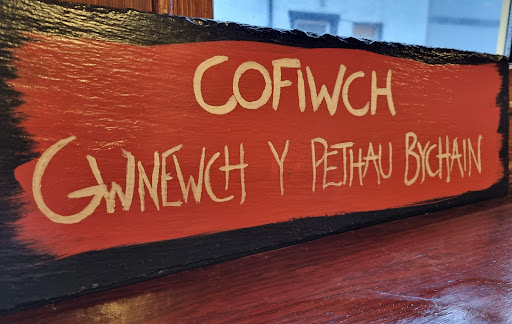 COFIWCH
GWNEWCH Y PETHAU BYCHAIN